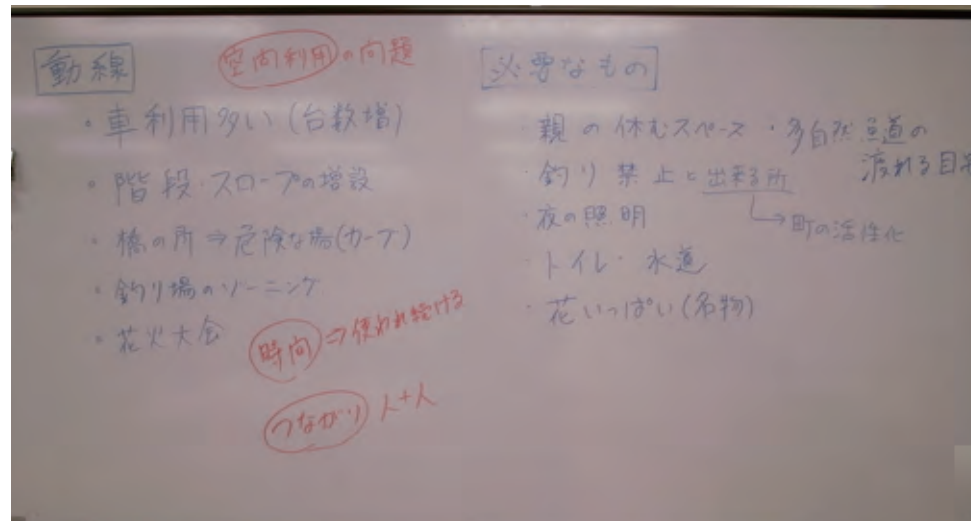 動線
空間利用の問題
・車利用多い(台数増)
・階段・スロープの増設
・橋の所⇒危険な場(カーブ)
・釣り場のゾーニング
・花火大会
時間⇒使われ続ける
つながり 人+人
必要なもの
・親の休むスペース ・多自然魚道の
渡れる
・釣り禁止と出来る所
→町の活性化
・夜の照明
・トイレ・水道
・花いっぱい(名物)